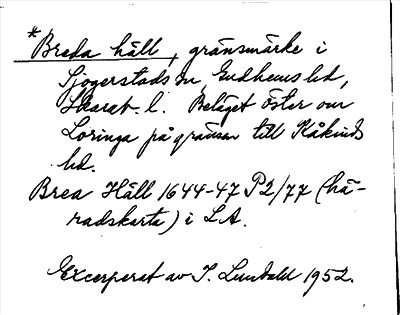 *Breda häll, gränsmärke i
Sjogerstads sn, Gudhems hd,
Skarab. l. Beläget öster om
Loringa på gränsen till Kåkinds
hd.
Brea Häll 1644-47 P2/77 (hä-
radskarta) i LA.
Excerperat av I. Lundahl 1952.